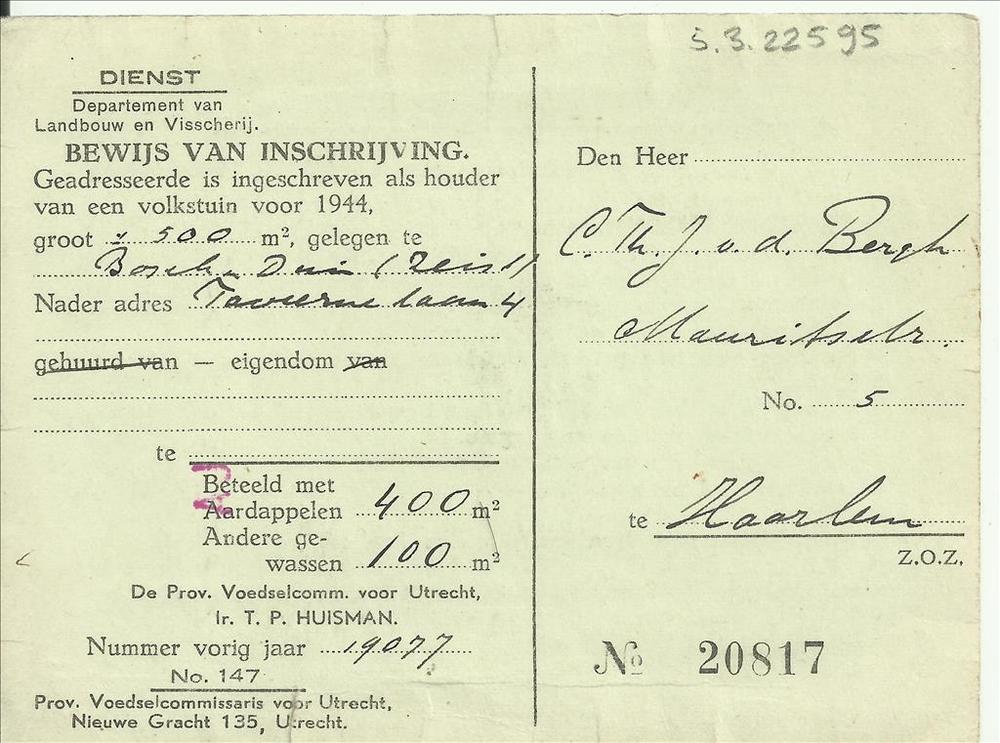 5.3.22595
DIENST
Departement van
Landbouw en Visscherij.
BEWIJS VAN INSCHRIJVING.
Geadresseerde is ingeschreven als houder
van een volkstuin voor 1944,
groot ± 500 m², gelegen te
Bosch en Duin (Zeist)
Nader adres Taveernelaan 4
gehuurd van — eigendom van
te
Beteeld met
Aardappelen 400 m²
Andere ge-
wassen 100 m²
De Prov. Voedselcomm. voor Utrecht,
Ir. T. P. HUISMAN.
Nummer vorig jaar 19077
No. 147
Prov. Voedselcommissaris voor Utrecht,
Nieuwe Gracht 135, Utrecht.
Den Heer
C. Th. J. v. d. Bergh
Mauritsstr.
No. 5
te Haarlem
Z.O.Z.
No 20817